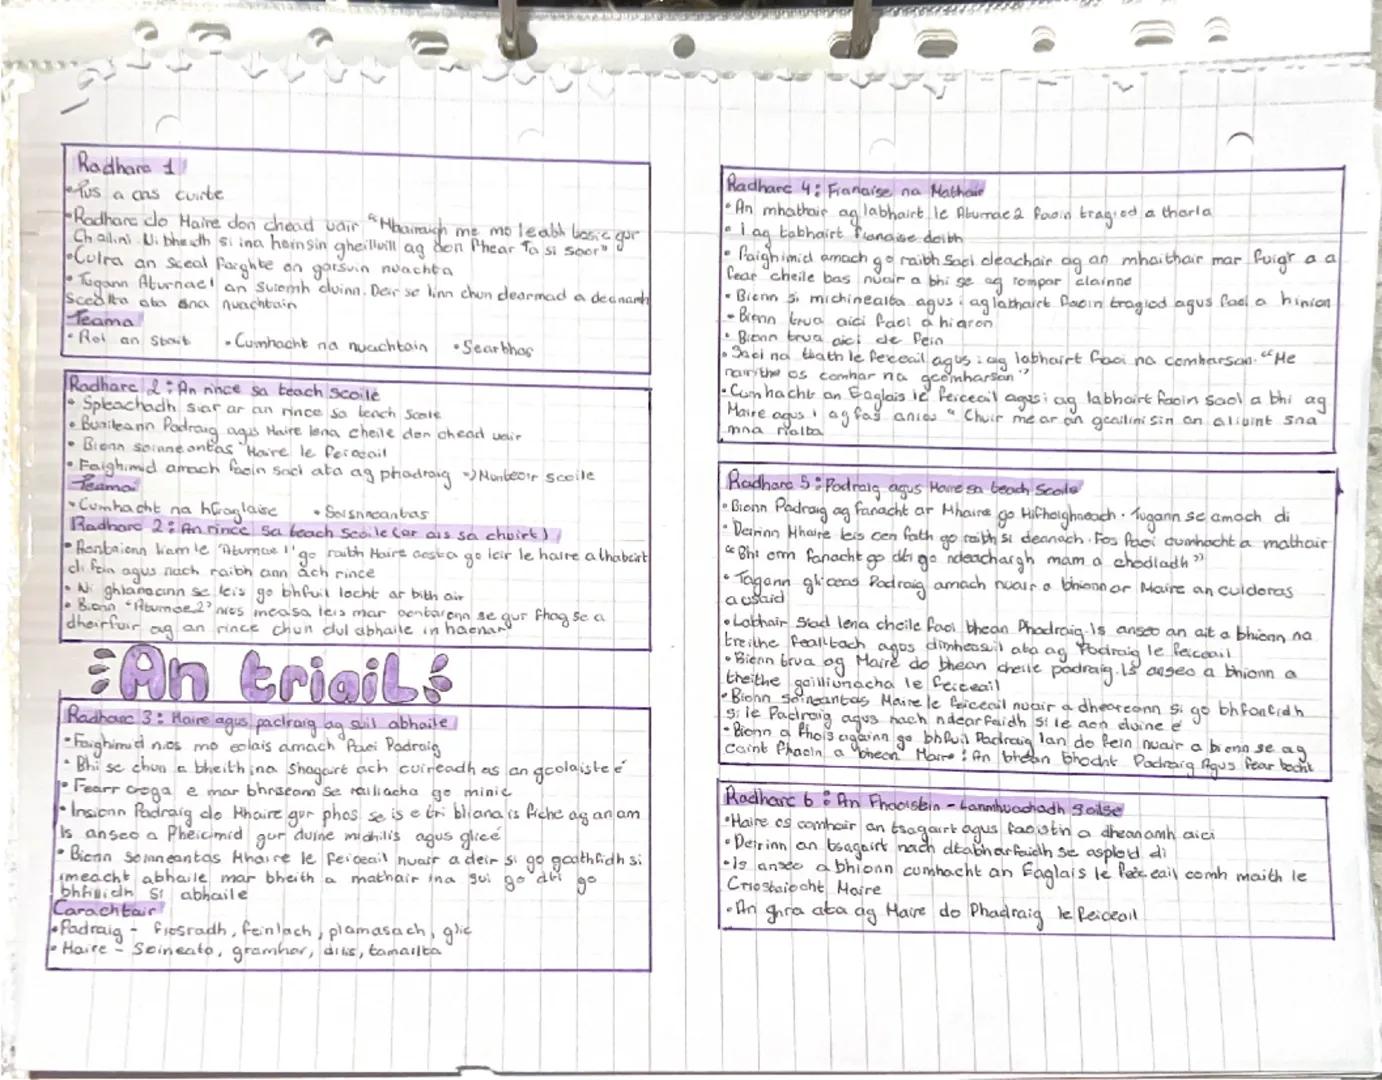 Radharc 1
• Tus a cas cuirte
• Radharc do Maire don chead uair "Mharaigh me mo leabh toisc gur
Chailini. Ni bheidh si ina hoinsin gheilluill ag don fhear Ta si saor"
• Culra an sceal faighte on garsuin nuachta
• Tugann Aturnae1 an suiomh duinn. Deir se linn chun dearmad a deanamh
scealta ata sna nuachtain
Teama
• Rol an Stait • Cumhacht na nuachtain • Searbhas
Radharc 2: An rince sa teach scoile
• Spleachadh siar ar an rince sa teach Scoile
• Buaileann Padraig agus Maire lena cheile don chead uair
• Bionn soinneantas Maire le feiceail
• Faighimid amach faoin saol ata ag phadraig => Munteoir scoile
Teamai
• Cumhacht na hEaglaise • Soisnneantas
Radharc 2: An rince sa teach Scoile (ar ais sa chuirt)
• Aontaionn liam le 'Aturnae 1' go raibh Maire aosta go leir le haire a thabairt
di fein agus nach raibh ann ach rince
• Ni ghlanacann se leis go bhfuil locht ar bith air
• Bionn "Aturnae2" nios measa leis mar aontaionn se gur fhag se a
dheirfuir ag an rince chun dul abhaile in haenar
An triail
Radharc 3: Maire agus padraig ag suil abhaile
• Faighimid nios mo eolais amach faoi Padraig
• Bhi se chun a bheith ina Shagart ach cuireadh as an gcolaiste é
• Fearr croga e mar bhriseann Se rialacha go minic
• Insionn Padraig do Mhaire gur phos se is e tri bliana is fiche ag an am
Is anseo a Pheicimid gur duine midhilis agus glicé
• Bionn Soinneantas Mhaire le feiceail nuair a deir si go gcaithfidh si
imeacht abhaile mar bheith a mathair ina sui go dti go
bhfillidh si abhaile
Carachtair
• Padraig - fiosradh, feinlach, plamasach, glic
• Maire - Soineata, gramhar, dilis, tamailta
Radharc 4: Fianaise na Mathair
• An mhathair ag labhairt le Aturnae2 faoin tragiod a tharla
• I ag tabhairt fianaise doibh
• Faighimid amach go raibh Saol deachair ag an mhaithair mar fuigr a a
fear cheile bas nuair a bhi se ag iompar clainne
• Bionn si michinealta agus i ag labhairt faoin tragiod agus faoi a hinion
• Bionn trua aici faoi a hiaron
• Bionn trua aici de fein
• Saol na tuath le feiceail agus i ag labhairt faoi na comharsan. "Me
nairithe os comhar na gcomharsan"
• Cumhacht an Eaglais le feiceail agus i ag labhairt faoin saol a bhi ag
Maire agus i ag fas anios "Chuir me ar an gcailini sin an aliuint sna
mna rialta
Radharc 5: Padraig agus Maire sa teach Scoile
• Bionn Padraig ag fanacht ar Mhaire go Mifhoighneach. Tugann se amach di
• Deirinn Mhaire leis cen fath go raibh si deanach. Fos faoi cumhacht a mathair
"Bhi orm fanacht go dti go ndeachaigh mam a chodladh"
• Tagann gliceas Padraig amach nuair a bhionn ar Maire an culdoras
a usaid
• Labhair Siad lena cheile faoi bhean Phadraig. Is anseo an ait a bhionn na
treithe fealltach agus dimheasuil ata ag Padraig le feiceail
• Bionn trua ag Maire do bhean cheile padraig. Is anseo a bhionn a
treithe goilliunacha le feiceail
• Bionn Soineantas Maire le feiceail nuair a dheareann si go bhfanfidh
si le Padraig agus nach ndearfaidh si le aon duine é
• Bionn a fhois againn go bhfuil Padraig lan do fein nuair a bionn se ag
caint fhaoin a bhean Maire: An bhean bhocht Padraig Agus fear bocht
Radharc 6: An Fhaoistin - Lannhuachadh Soilse
• Maire os comhair an tsagairt agus faoistin a dheanamh aici
• Deirinn an tsagairt nach dtabharfaidh se asploid di
• Is anseo a bhionn cumhacht an Eaglais le feiceail comh maith le
Criostaiocht Maire
• An ghra ata ag Maire do Phadraig le feiceail